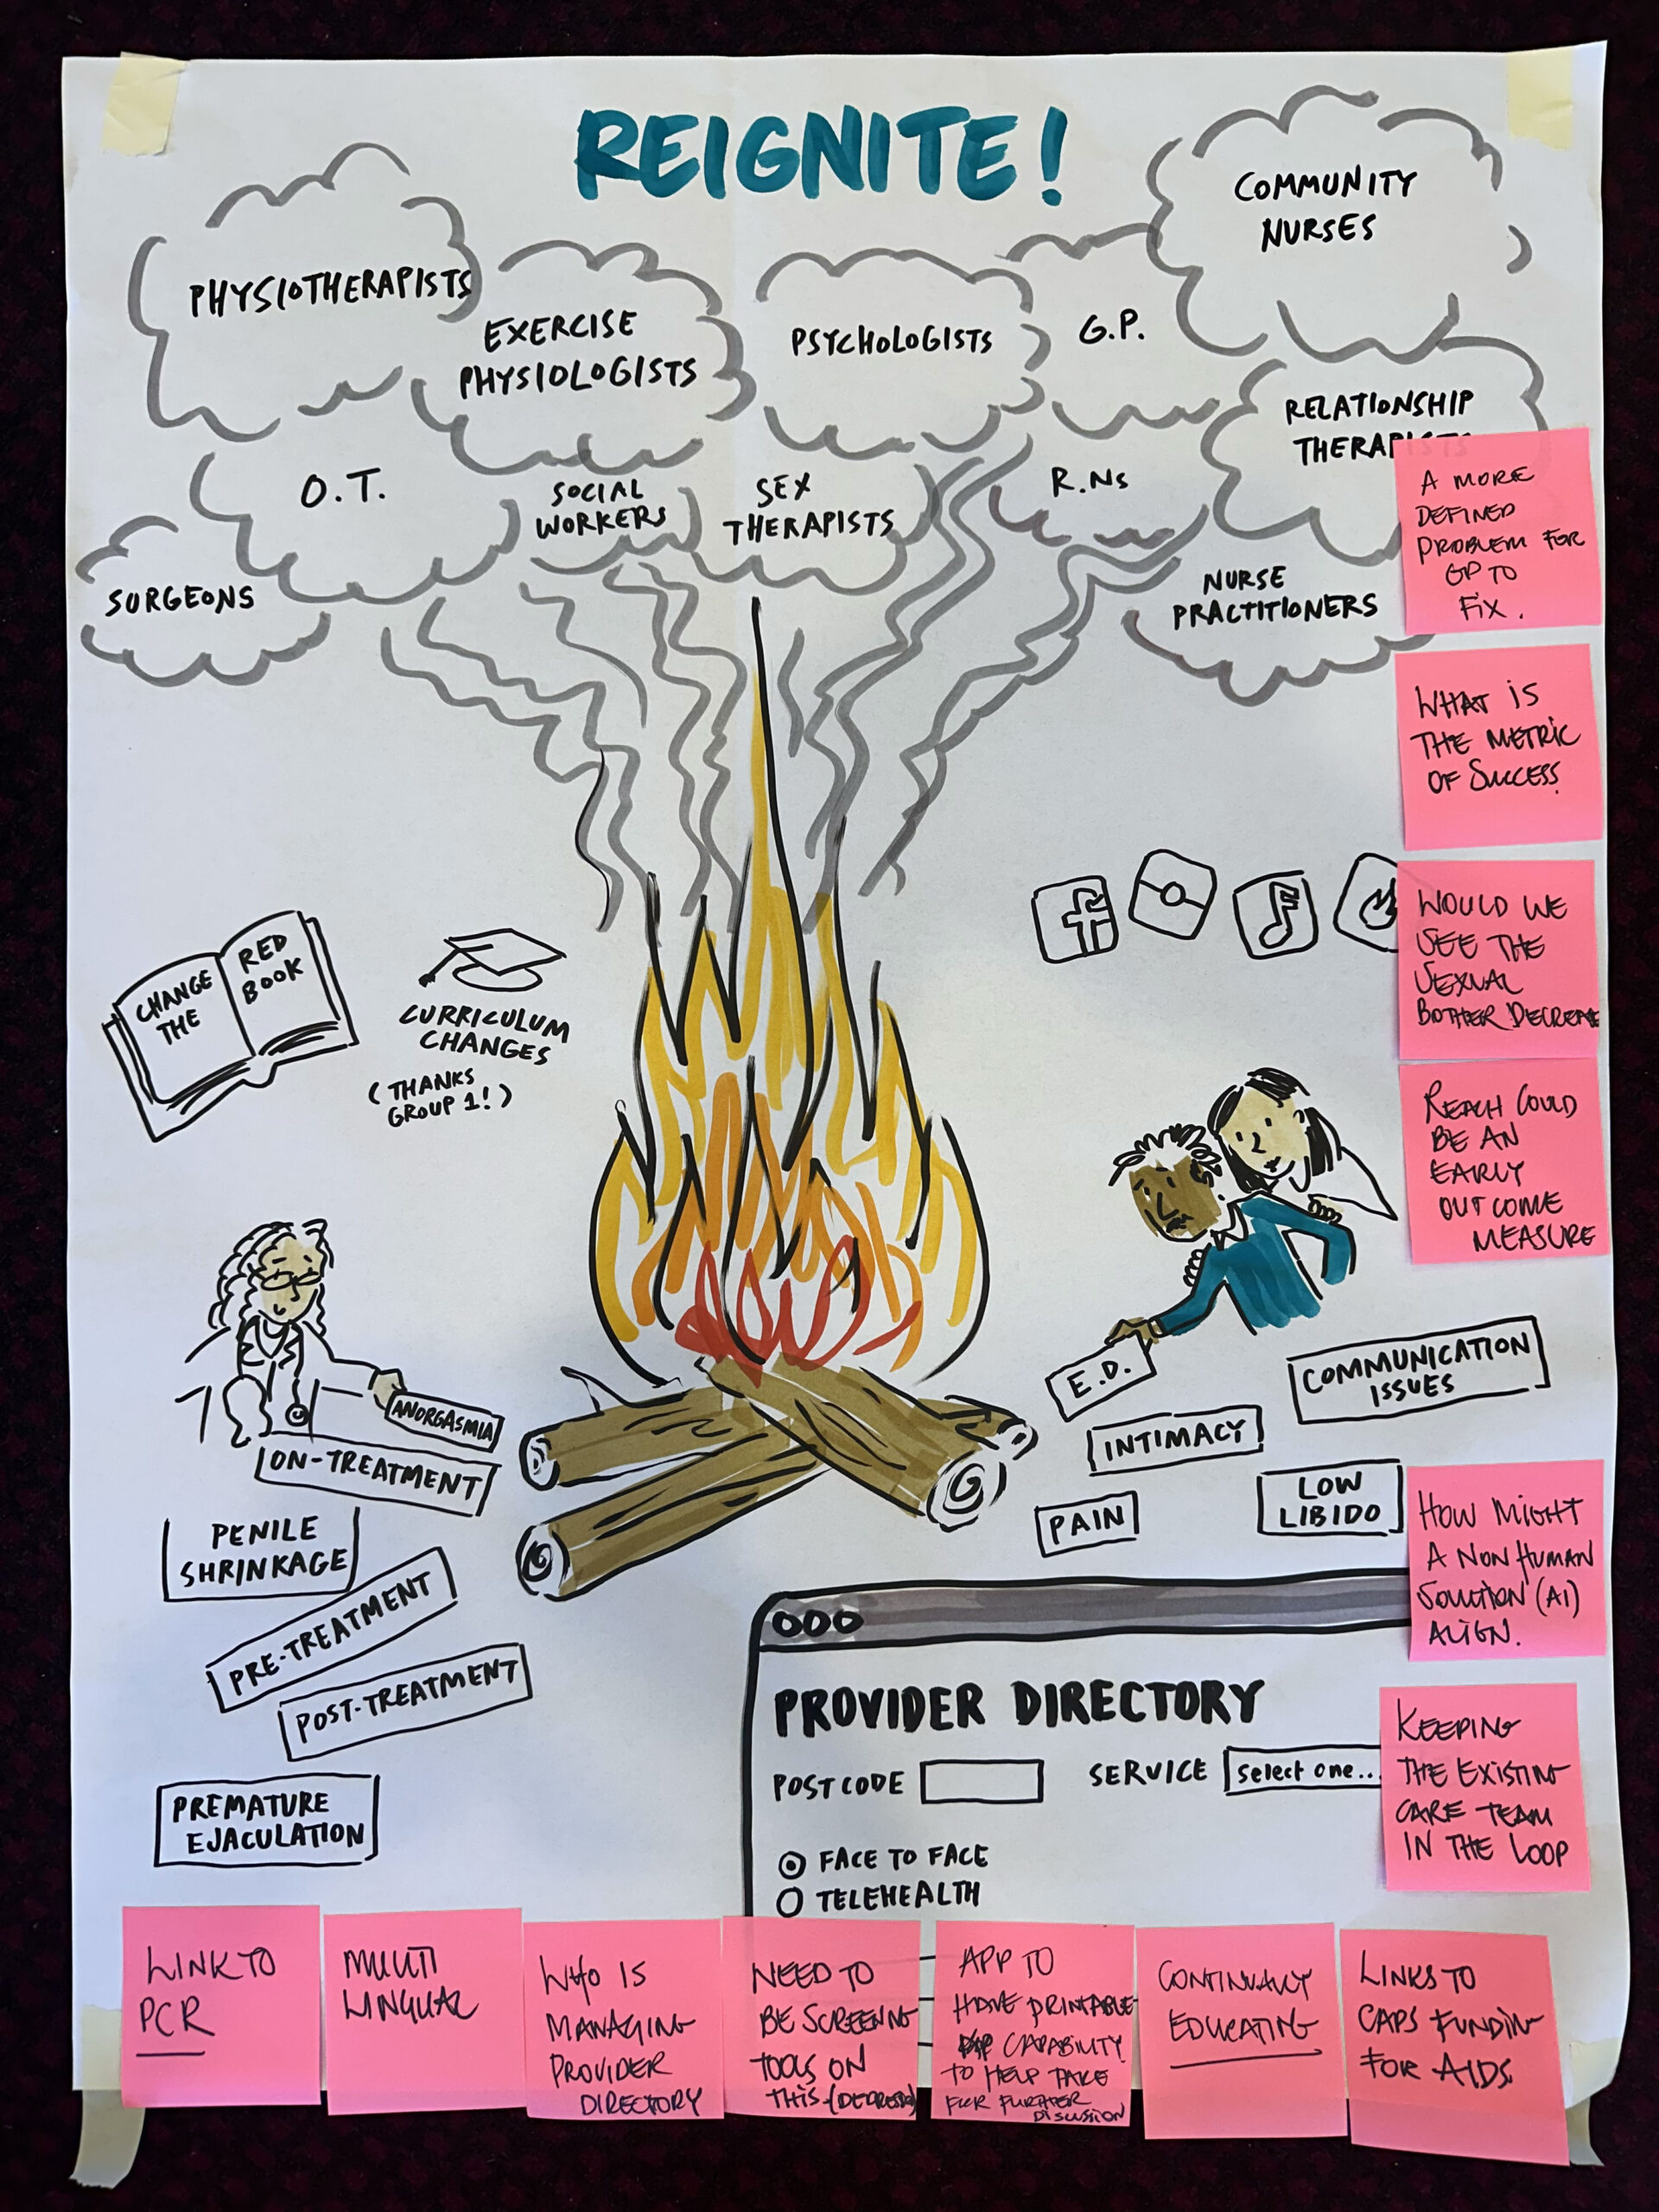 REIGNITE!
COMMUNITY
NURSES
PHYSIOTHERAPISTS
EXERCISE
PHYSIOLOGISTS
PSYCHOLOGISTS
G.P.
RELATIONSHIP
THERAPISTS
O.T.
SOCIAL
WORKERS
SEX
THERAPISTS
R.Ns
SURGEONS
NURSE
PRACTITIONERS
A MORE
DEFINED
PROBLEM FOR
GP TO
FIX.
WHAT IS
THE METRIC
OF SUCCESS
WOULD WE
SEE THE
SEXUAL
BOTHER DECREASE
REACH COULD
BE AN
EARLY
OUTCOME
MEASURE
CHANGE
THE
RED
BOOK
CURRICULUM
CHANGES
(THANKS
GROUP 1!)
f
ANORGASMIA
ON-TREATMENT
PENILE
SHRINKAGE
PRE-TREATMENT
POST-TREATMENT
PREMATURE
EJACULATION
E.D.
COMMUNICATION
ISSUES
INTIMACY
PAIN
LOW
LIBIDO
HOW MIGHT
A NON HUMAN
SOLUTION (AI)
ALIGN.
PROVIDER DIRECTORY
POSTCODE
SERVICE
select one...
FACE TO FACE
TELEHEALTH
KEEPING
THE EXISTING
CARE TEAM
IN THE LOOP
LINK TO
PCR
MULTI
LINGUAL
WHO IS
MANAGING
PROVIDER
DIRECTORY
NEED TO
BE SCREENING
TOOLS ON
THIS
APP TO
HAVE PRINTABLE
CAPABILITY
TO HELP TAKE
FOR FURTHER
DISCUSSION
CONTINUALY
EDUCATING
LINKS TO
CAPS FUNDING
FOR AIDS